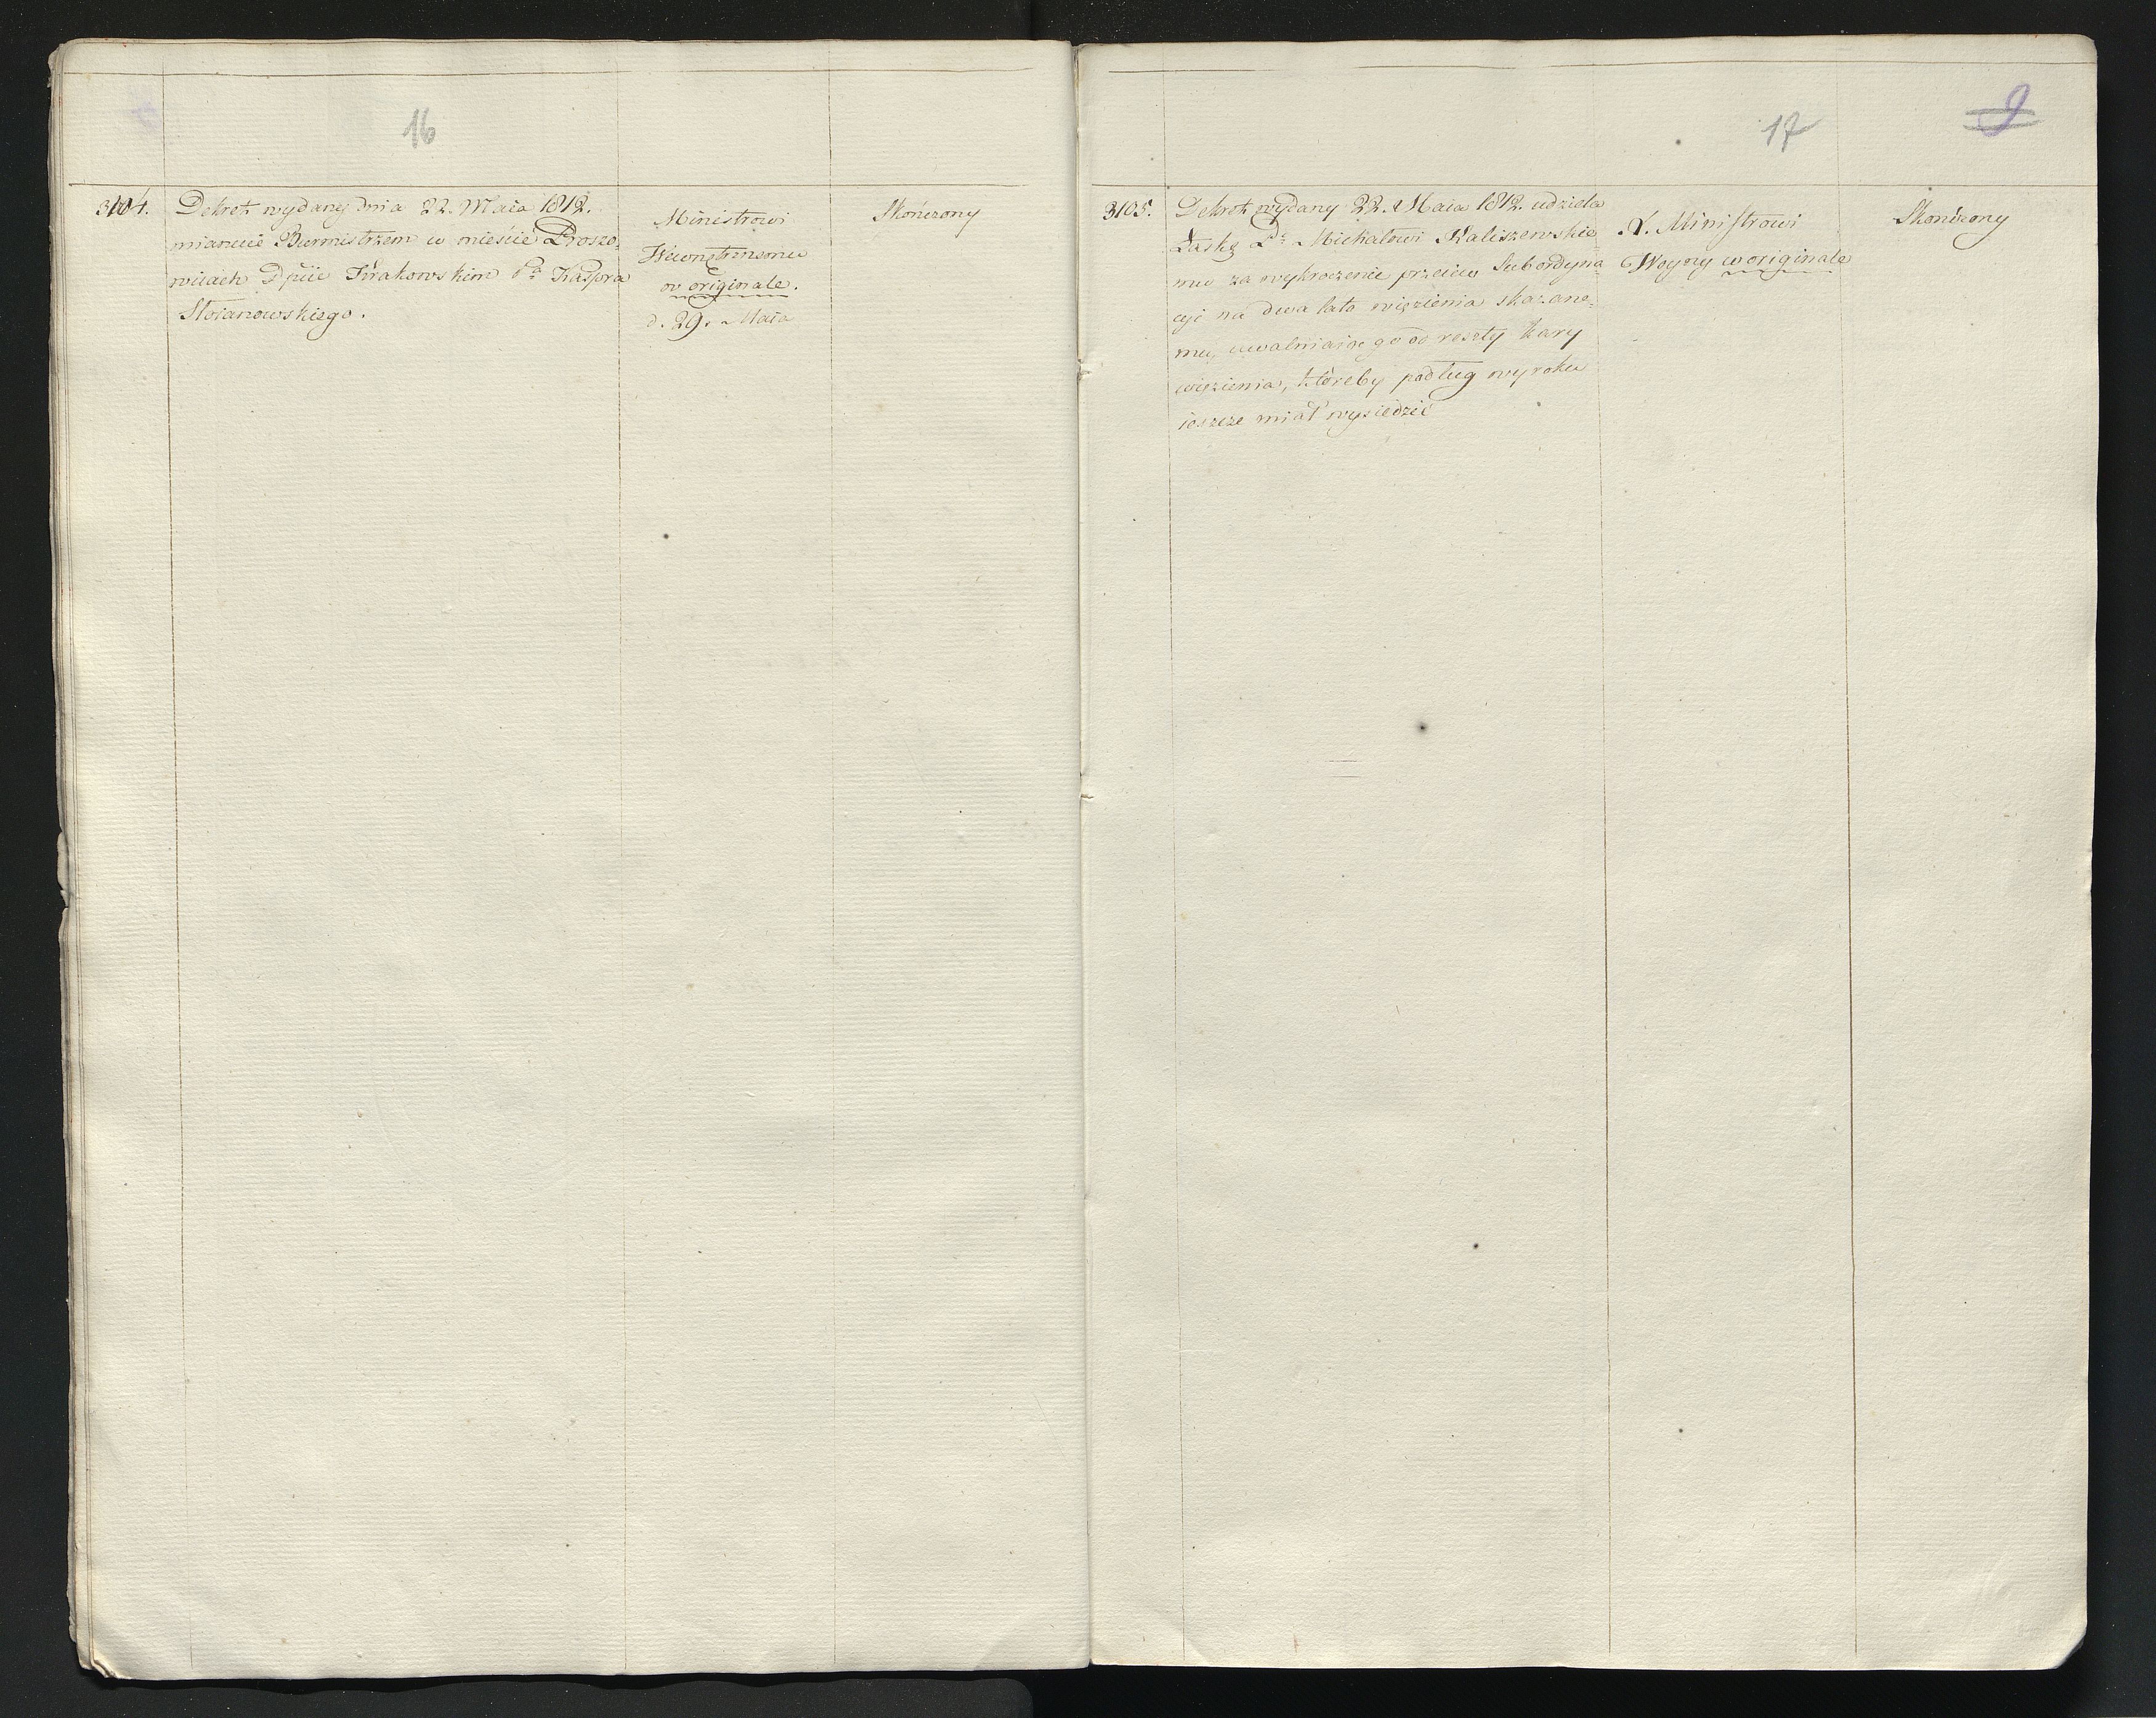 16
3104.
Dekret wydany dnia 22. Maia 1812.
mianuie Burmistrzem w mieście Proszo-
wicach Dpcie Krakowskim Pa Kaspra
Stoianowskiego.
Ministrowi
Wewnętrznemu
w originale.
d. 29. Maia
Skończony
17
9
3105.
Dekret wydany 22. Maia 1812. udziela
Łaskę Pu Michałowi Kaliszewskie
mu za wykroczenie przeciw Subordyna
cyi na dwa lata więzienia skazane-
mu, uwalniaiąc go od reszty kary
więzienia, któreby podług wyroku
ieszcze miał wysiedzić
X. Ministrowi
Woyny w originale
Skończony